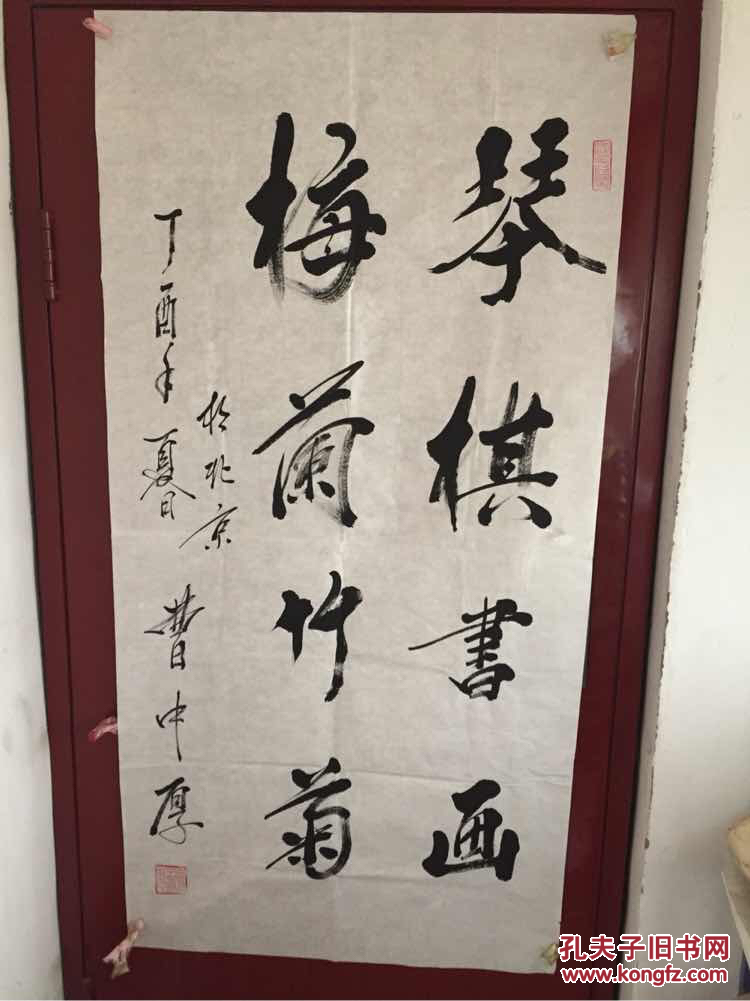 琴棋書画
梅蘭竹菊
丁酉年夏日
於北京
曹中厚
孔夫子旧书网
www.kongfz.com